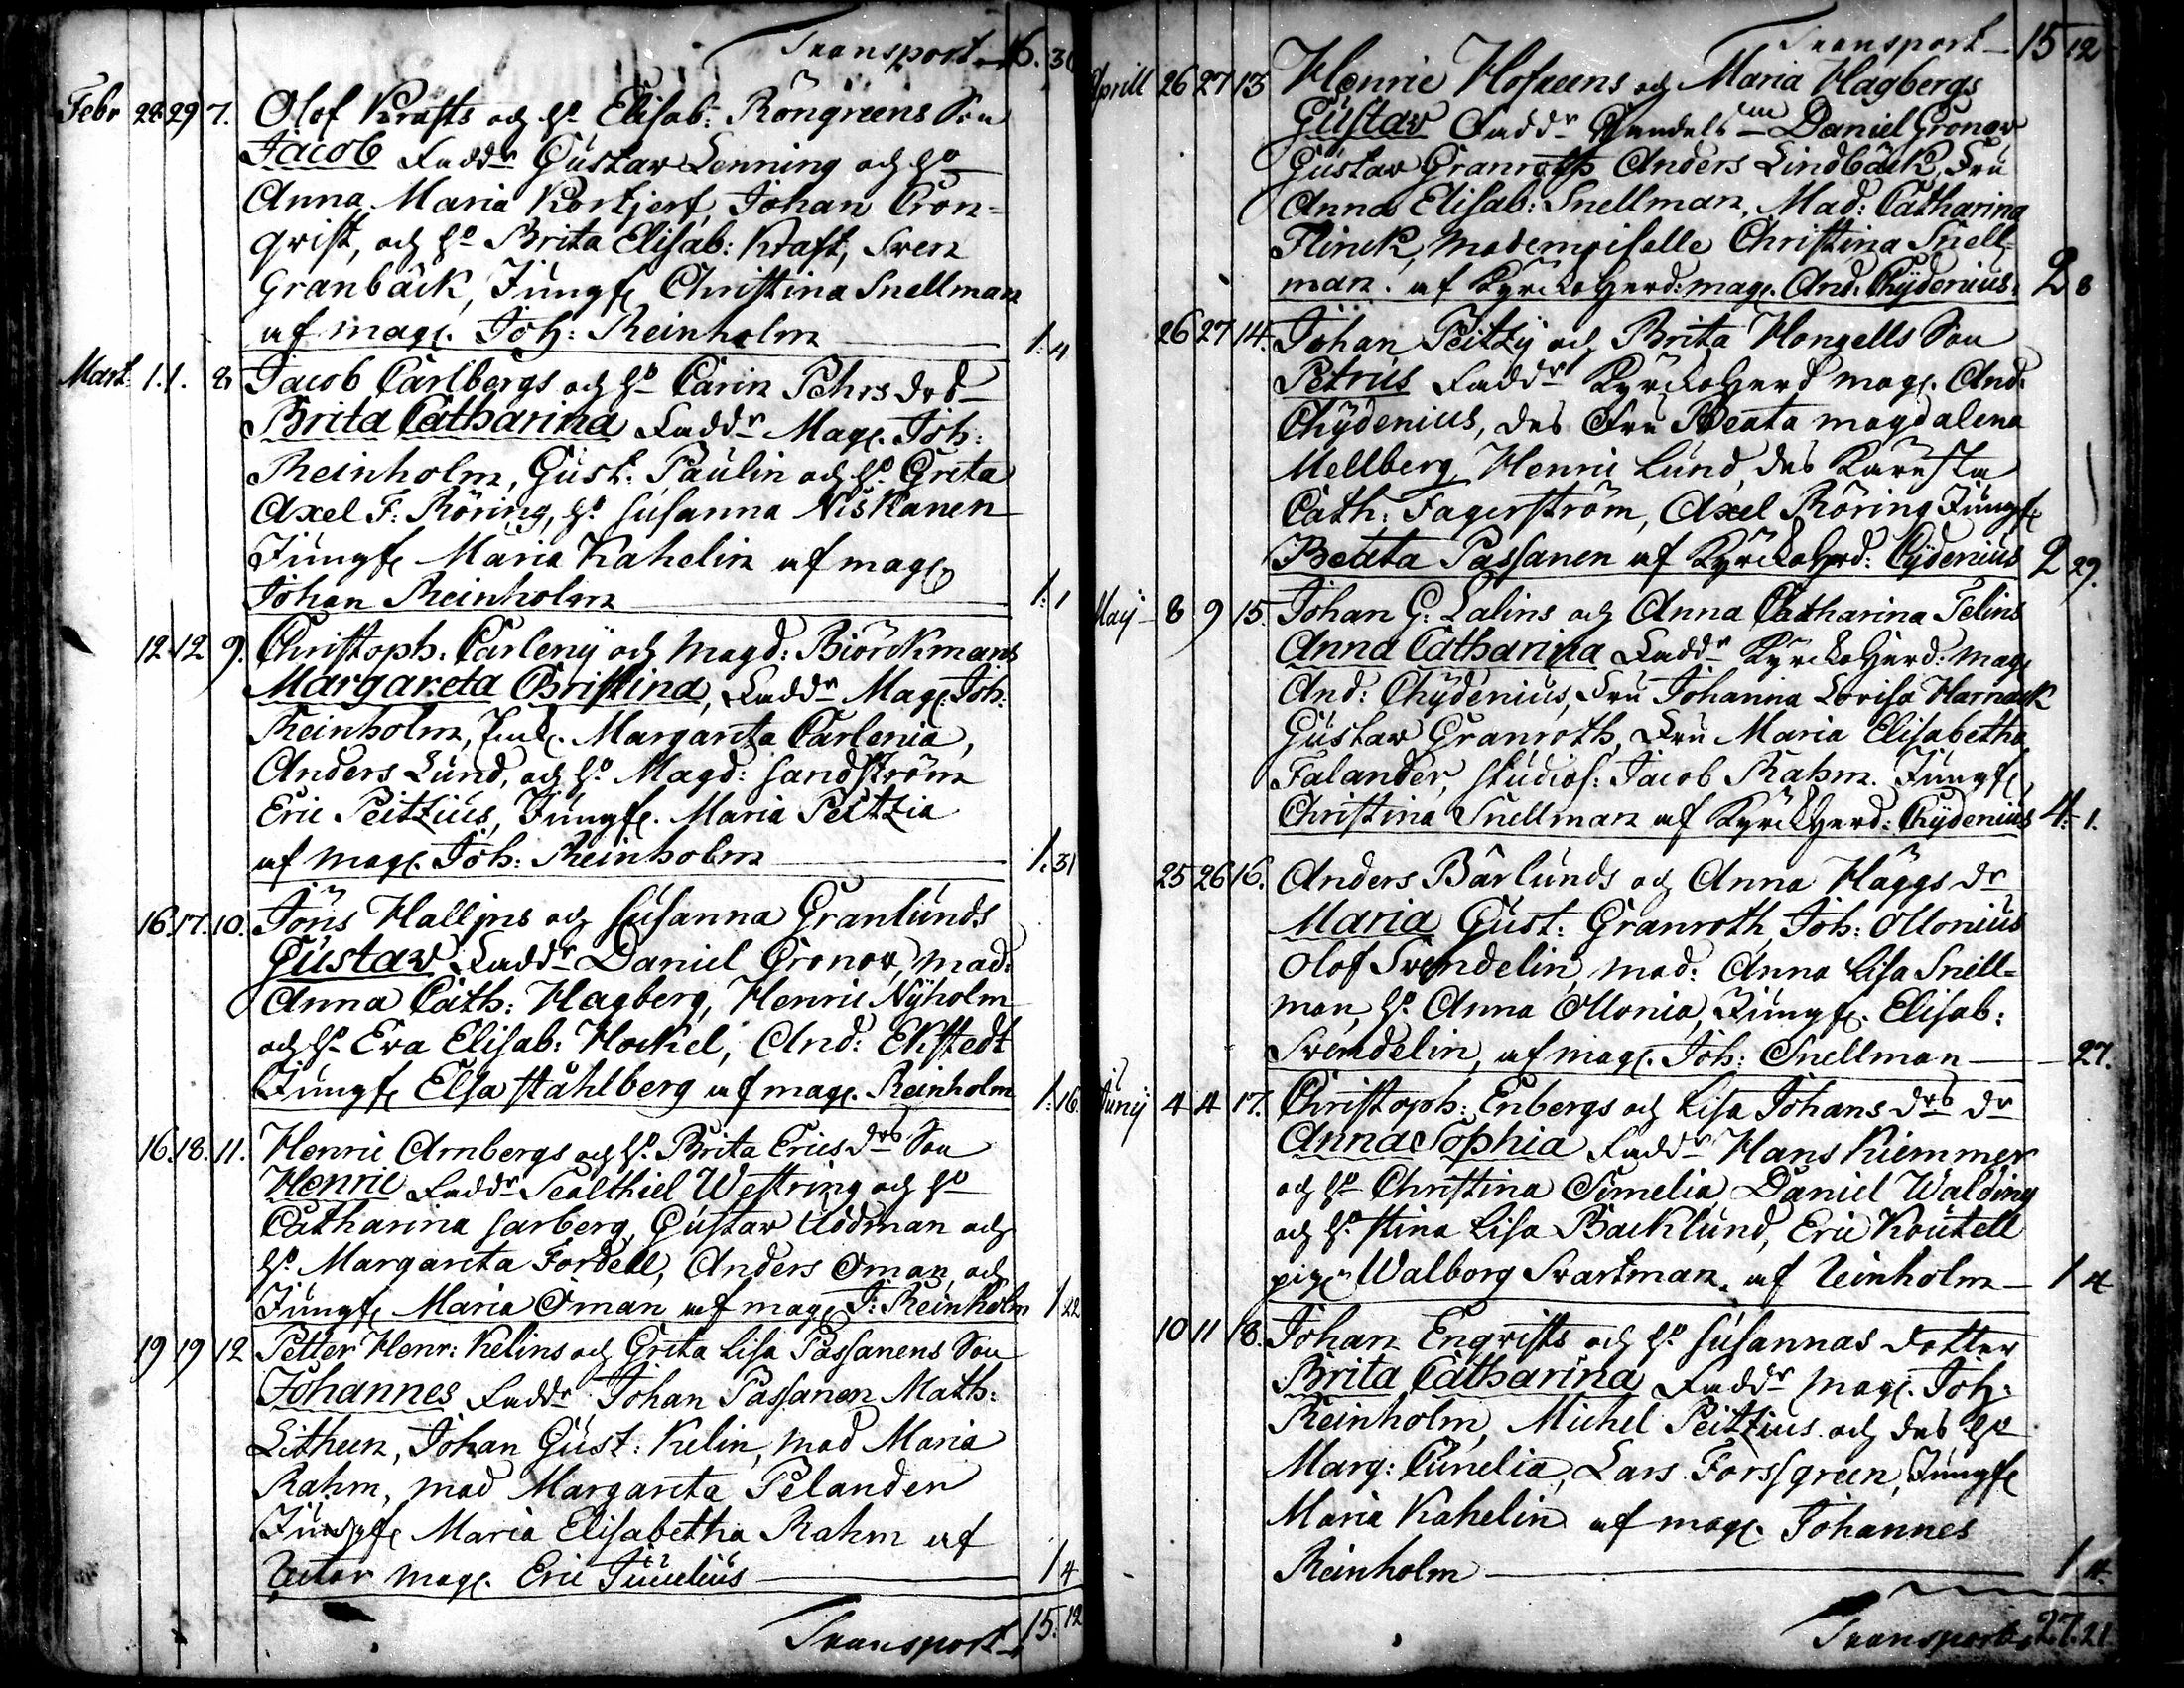 Transport 6. 30
Febr 28. 29 7. Olof Krafts och h: Elisab: Röngreens Son
Jacob Faddr Gustav Lenning och ho
Anna Maria Korkjerf, Johan Cron=
qvist, och ho Brita Elisab: Kraft, Sven
Granbäck, Jungf: Christina Snellman
af mag. Joh: Reinholm 1: 4
Mart. 1. 1. 8 Jacob Carlbergs och ho Carin Pehrs dot
Brita Catharina Faddr Mag. Joh:
Reinholm, Gust: Paulin och ho Greta
Axel F: Röring, ho Susanna Niskanen
Jungf: Maria Kahelin af mag.
Johan Reinholm 1: 1
12 12 9. Christoph: Carleny och Magd: Biörckmans
Margareta Christina, Faddr Mag. Joh:
Reinholm, Margareta Carlenia,
Anders Lund, och ho Magd: Sandström
Eric Peitzius, Jungf. Maria Peitzia
af Mag. Joh: Reinholm 1. 31
16. 17. 10. Jöns Halljns och Susanna Granlunds
Gustav Faddr Daniel Gronow, mad:
Anna Cath: Hagberg, Henric Nyholm
och ho Eva Elisab: Hockel, And: Ekstedt
Jungf: Elsa ståhlberg af mag. Reinholm 1. 16.
16. 18. 11. Henric Arnbergs och ho Brita Ericsdrs Son
Henric Faddr Sealthiel Westring och ho
Catharina Sarberg, Gustav Uddman och
ho Margareta Fordell, Anders Öman, och
Jungf: Maria Öman af mag. J: Reinholm 1 22
19 19 12 Petter Henr: Kelins och Greta Lisa Passanens Son
Johannes Faddr Johan Passanen Math:
Litheen, Johan Gust: Kelin, mad Maria
Rahm, mad Margareta Pelander
Jungf: Maria Elisabetha Rahm af
Rector mag. Eric Juvelius 1 4
Transport 15. 12
Transport 15 12
Aprill 26 27 13 Henric Hofreens och Maria Hagbergs
Gustav Faddr Handelsm Daniel Gronow
Gustav Granroth, Anders Lindbäck, Fru
Anna Elisab: Snellman, Mad: Catharina
Flinck, Mademoiselle Christina Snell=
man. af Kyrckoherd: mag. And: Chydenius. 2 8
26 27 14. Johan Peitzy och Brita Hongells Son
Petrus Faddr Kyrckoherd mag. And:
Chydenius, des Fru Beata Magdalena
Mellberg, Henric Lund, des Käresta
Cath: Fagerström, Axel Röring, Jungf:
Beata Passanen af Kyrckoherd: Cydenius 2 29.
Maij 8 9 15. Johan G: Lalins och Anna Catharina Felins
Anna Catharina Faddr Kyrckoherd: mag
And: Chydenius, Fru Johanna Lovisa Harnesk
Gustav Granroth, Fru Maria Elisabetha
Falander, studios: Jacob Rahm. Jungf:
Christina Snellman af Kyrckherd: Chydenius 4. 1.
25 26 16. Anders Bärlunds och Anna Häggs dr
Maria Gust: Granroth, Joh: Ollonius
Olof Svendelin, mad: Anna Lisa Snell=
man, ho Anna Ollonia, Jungf. Elisab:
Svendelin, af mag. Joh: Snellman 27.
Junij 4 4 17. Christoph: Enbergs och Lisa Johansdrs dr
Anna Sophia Faddr Hans Kiemmer
och ho Christina Simelia, Daniel Walding
och ho Stina Lisa Backlund, Eric Koutell
pig: Walborg Svartman. af Reinholm 1 4
10 11 18. Johan Enqvists och ho Susannas dotter
Brita Catharina Faddr mag. Joh:
Reinholm, Michel Peitzius och des ho
Marg: Cunelia, Lars Forssgreen, Jungf:
Maria Kahelin af mag. Johannes
Reinholm 1 4.
Transport 27. 21